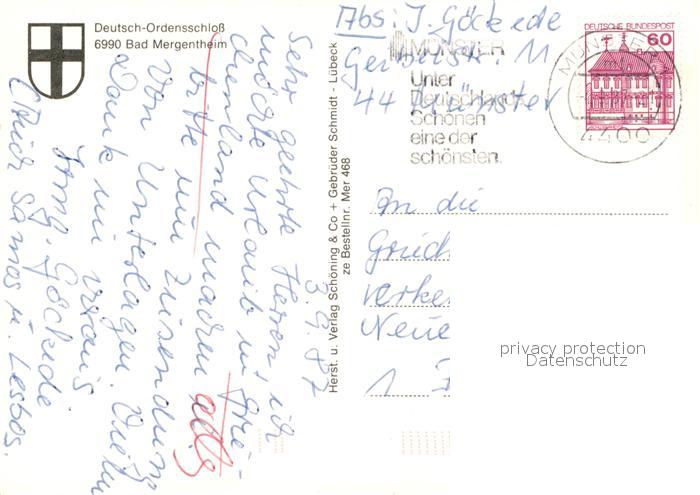 Deutsch-Ordensschloß
6990 Bad Mergentheim
Abs: J. Göckede
Gerberstr. 11
44 Münster
MÜNSTER
Unter
Deutschlands
Schönen
eine der
schönsten.
DEUTSCHE BUNDESPOST
60
MÜNSTER
4400
Herst. u. Verlag Schöning & Co + Gebrüder Schmidt - Lübeck
ze Bestellnr. Mer 468
3.9.87
Sehr geehrte Herren, ich
möchte Urlaub in Grie-
chenland machen
bitte um Zusendung
von Unterlagen. Vielen
Dank im voraus
Göckede
(Auch Samos u. Lesbos.
An die
Griech
verke
Neue
1
privacy protection
Datenschutz